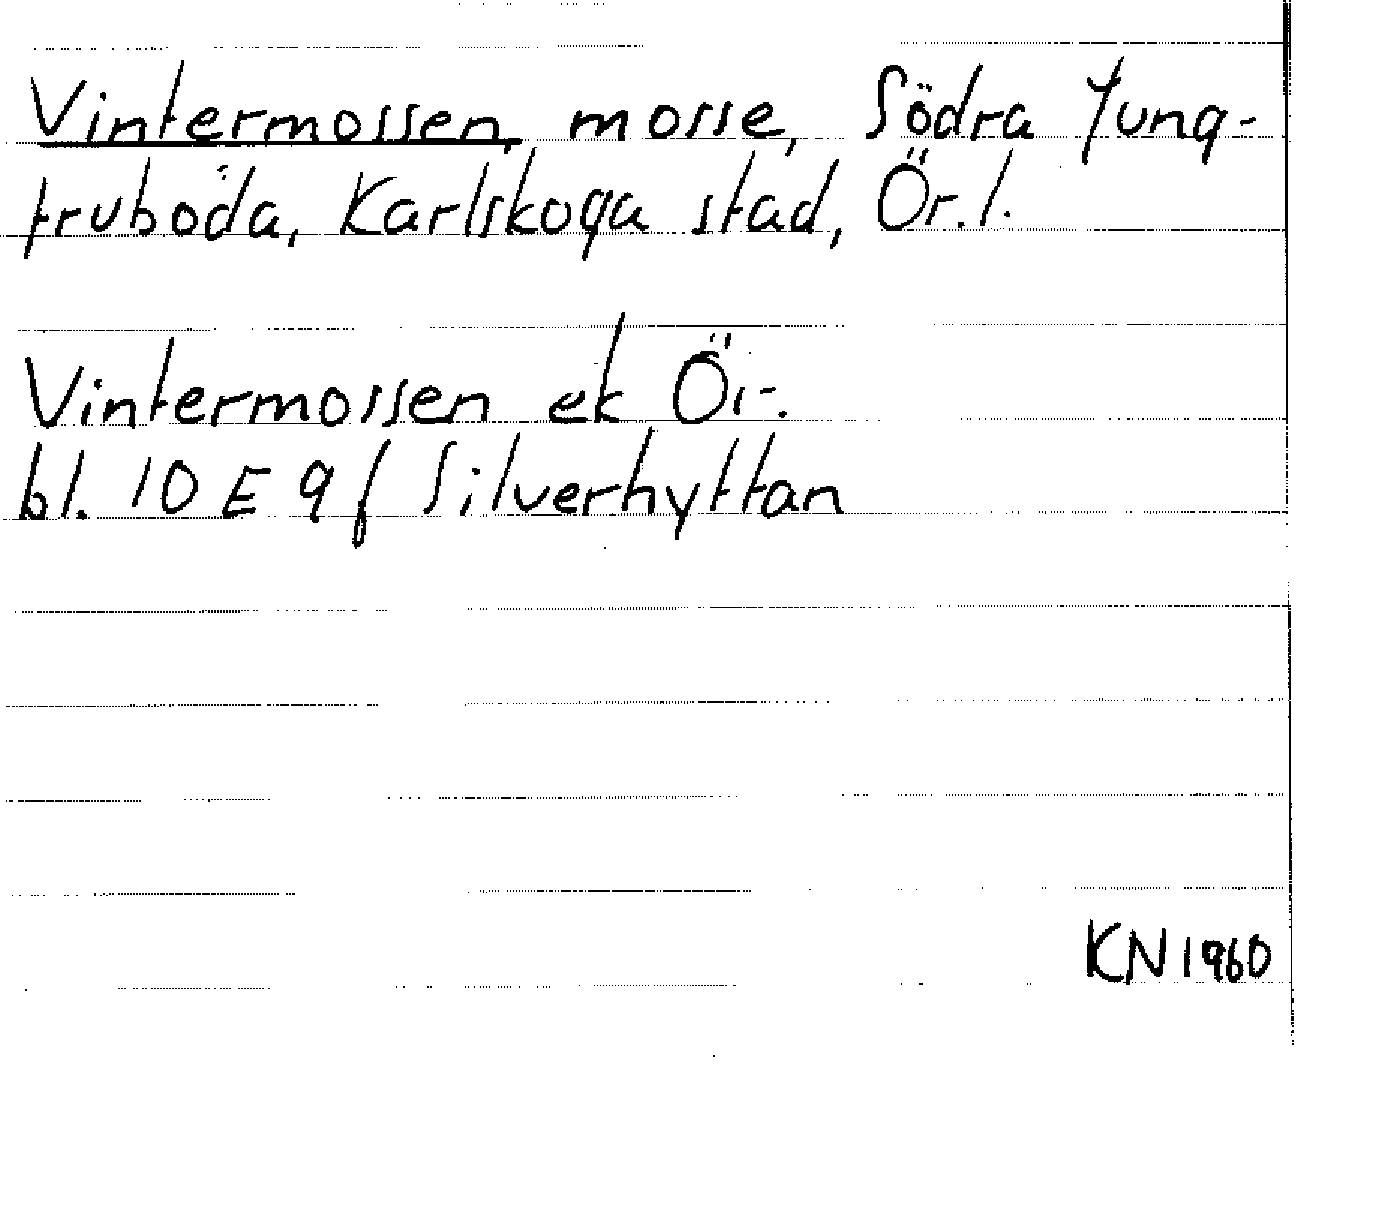 Vintermossen, mosse, Södra Jung-
fruboda, Karlskoga stad, Ör. l.
Vintermossen ek Ör.
bl. 10 E 9 f Silverhyttan
KN 1960